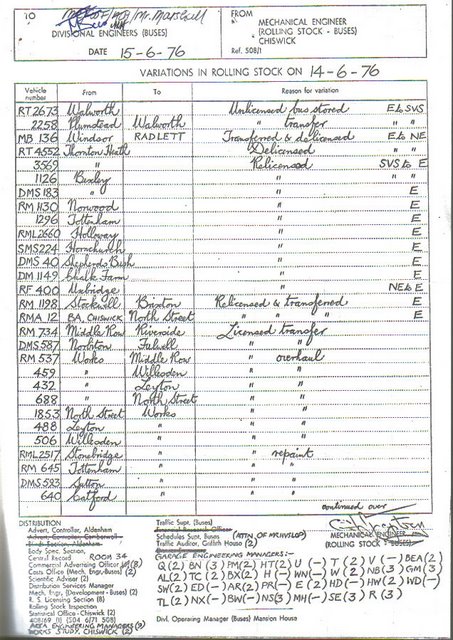 TO
DIVISIONAL ENGINEERS (BUSES)
DATE 15-6-76
FROM
MECHANICAL ENGINEER
(ROLLING STOCK - BUSES)
CHISWICK
Ref. 508/1
VARIATIONS IN ROLLING STOCK ON 14-6-76
Vehicle number From To Reason for variation
RT 2673 Walworth Unlicensed bus stored E to SVS
2258 Plumstead Walworth " transfer " "
MB 136 Windsor RADLETT Transferred & delicensed E to NE
RT 4652 Thornton Heath Delicensed E
3559 " Relicensed SVS to E
1126 Bexley " " "
DMS 183 " " E
RM 1130 Norwood " E
1296 Tottenham " E
RML 2660 Holloway " E
SMS 224 Hornchurch " E
DMS 40 Shepherds Bush " E
DM 1149 Chalk Farm " E
RF 400 Uxbridge " NE to E
RM 1198 Stockwell Brixton Relicensed & transferred E
RMA 12 BA, CHISWICK North Street " " " E
RM 734 Middle Row Riverside Licensed transfer
DMS 587 Norbiton Fulwell " "
RM 537 Works Middle Row " overhaul
459 " Willesden " "
432 " Leyton " "
688 " North Street " "
1853 North Street Works " "
488 Leyton " " "
506 Willesden " " "
RML 2517 Stonebridge " " repaint
RM 645 Tottenham " " "
DMS 593 Sutton " " "
640 Catford " " "
continued over
DISTRIBUTION
Advert. Controller, Aldenham
Body Spec. Section,
Central Record ROOM 34
Commercial Advertising Officer
Costs Office (Mech. Engr.-Buses) (2)
Scientific Adviser (2)
Distribution Services Manager
Mech. Engr. (Development - Buses) (2)
R. S. Licensing Section (8)
Rolling Stock Inspection
Statistical Office - Chiswick (2)
AREA ENGINEERING MANAGERS
WORKS STUDY, CHISWICK (2)
Traffic Supt. (Buses)
Schedules Supt. Buses
Traffic Auditor, Griffith House (2)
GARAGE ENGINEERING MANAGERS:-
Q(2) BN(3) PM(2) HT(2) U(-) T(2) V(-) BEA(2)
AL(2) TC(2) BX(2) H(-) WN(-) W(2) NB(3) GM(3)
SW(2) ED(-) AR(2) PR(-) E(2) HD(-) HW(2) WD(-)
TL(2) NX(-) BW(-) NS(3) MH(-) SE(3) R(3)
Divl. Operating Manager (Buses) Mansion House
MECHANICAL ENGINEER
(ROLLING STOCK - BUSES)